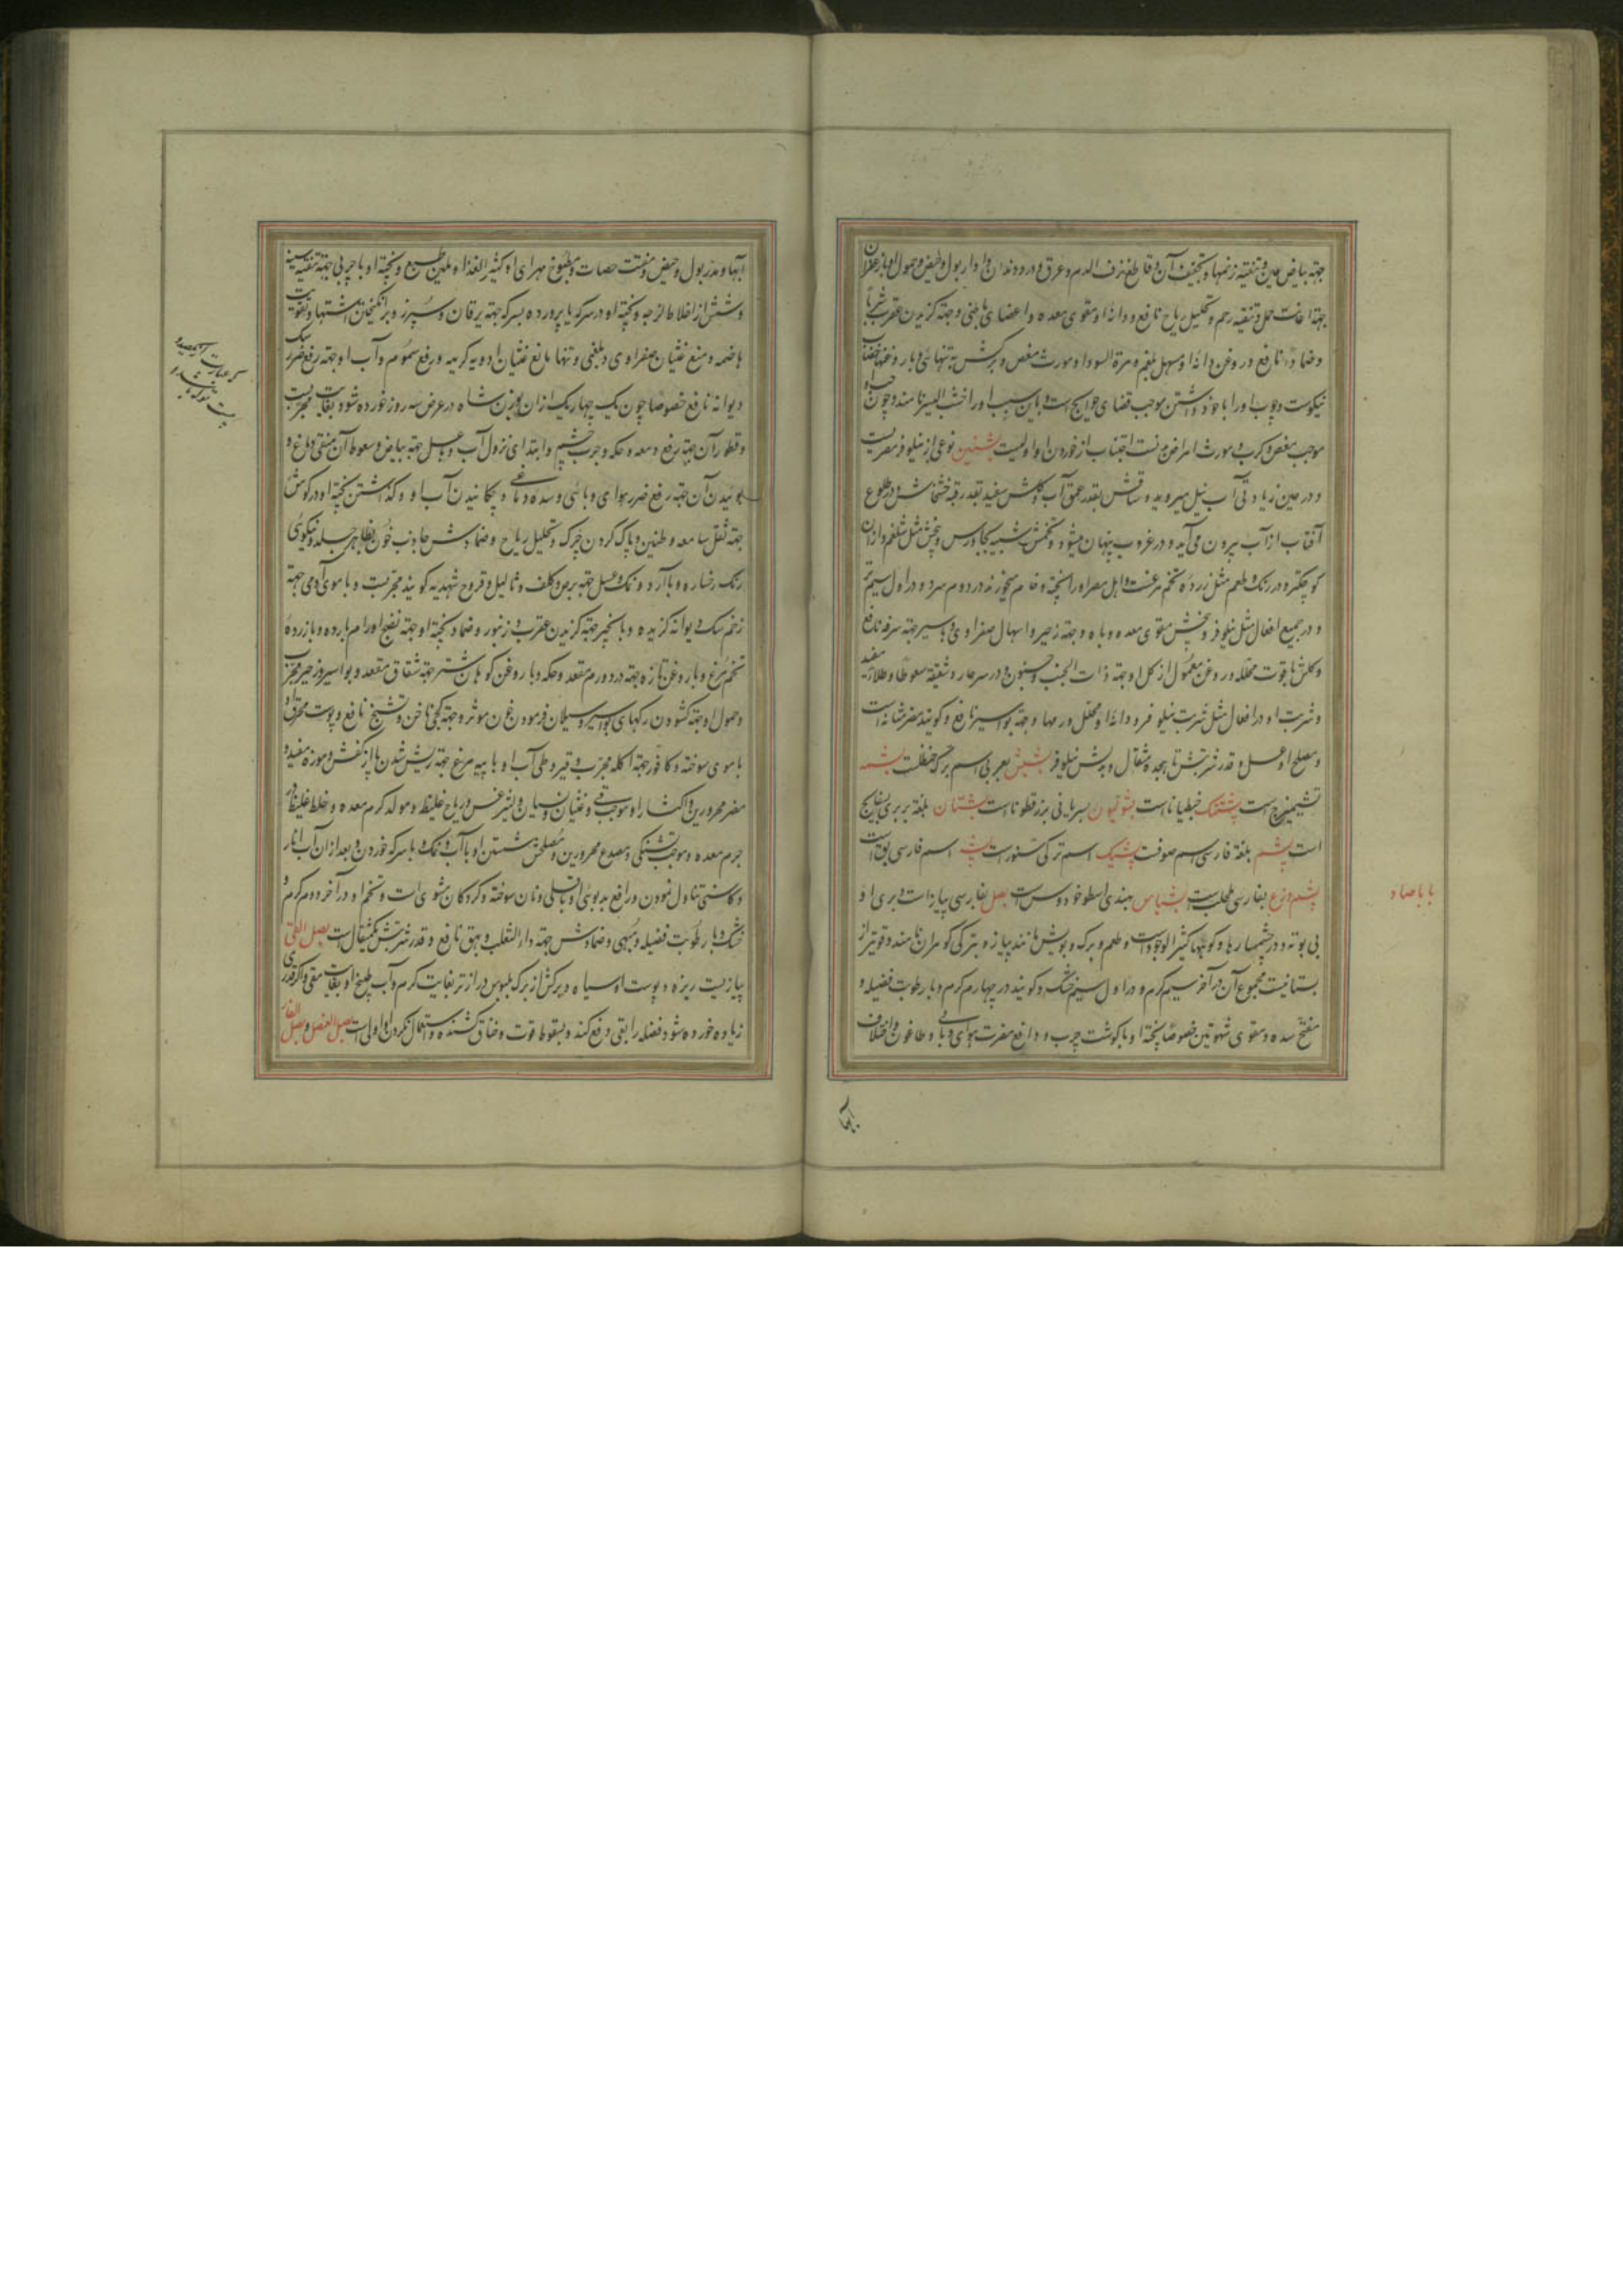 جهته بیاض عین و تنقیه زخمها و تجفیف آن و قاطع نزف الدم و عرق و درد دندان و ادرار بول و حیض و حمول او با زعفران
جهته اعانت حمل و تنقیه رحم و تحلیل ریاح نافع و دانهٔ او مقوی معده و اعضای باطنی و جهته گزیدن عقرب شرباً
و ضماداً نافع و روغن دانهٔ او مسهل بلغم و مرة السودا و مورث مغص و برکش به تنهائی و با روغنها خضاب
نیکوست و چوب او را با خود داشتن موجب قضای حوایج است و باین سبب او را نامند و چون
موجب مغص و کرب و مورث امراض مزمنست اجتناب از خوردن او اولیست بشنین نوعی از نیلوفر مصریست
و در حین زیادتی آب نیل میروید و ساقش بقدر عمق آب و کلش سفید بقدر قبه خشخاش و در طلوع
آفتاب از آب بیرون می آید و در غروب پنهان میشود و تخمش شبیه بجاورس و بیخش مثل شلغم و ازان
کوچکتر و در رنک و طعم مثل زرده تخم مرغست و اهل مصر او را پخته و خام میخورند در دوم سرد و در اول سیم تر
و در جمیع افعال مثل نیلوفر و بیخش مقوی معده و باه و جهته زحیر و اسهال صفراوی و بواسیر و جهته سرفه نافع
و کلش با قوت محلله و روغن معمول از کل او جهته ذات الجنب و جنون و در سر حار و شقیقه سعوطا و طلاءً مفید
و شربت او در افعال مثل شربت نیلوفر و دانهٔ او محلل ورمها و جهته بواسیر نافع و کویند مضر مثانه است
و مصلح او عسل و قدر شربتش تا هجده مثقال و بدلش نیلوفر بشبش بعربی اسم برک حنظلست بشمه
تشمیزج است بشتنک خطیانا است بشولیون بسریانی بزرقطونا است بشتان بلغة بربری بسفایج
است پشم بلغة فارسی اسم صوفست پشیک اسم ترکی سنورست پشه اسم فارسی بق است
پشم وزغ بفارسی طحلبست بشباس بهندی اسطوخودوس ست بصل بفارسی پیاز است و بری او
بی بوته و در چشمسارها و کوهها کثیر الوجود است و طعم و برک و بویش مانند پیاز و بترکی کومران نامند و قویتر از
بستانیست مجموع آن در آخر سیم گرم و در اول سیم خشک و کویند در چهارم کرم و با رطوبت فضیله و
مفتح سده و مقوی شهوتین خصوصاً پختهٔ او با کوشت چرب و دافع مضرت هوای وبائی و طاعون و اختلاف
آبها
با با صاد
آبها و مدر بول و حیض و مفتت حصات و مطبوخ مهرای او کثیر الغذا و ملین طبع و پختهٔ او با چربی جهته تنقیه سینه
و شش از اخلاط لزجه و پختهٔ او در سرکه یا پرورده بسرکه جهته یرقان و سپرز و برانکیختن اشتها و تقویت
هاضمه و منع غثیان صفراوی و بلغمی و تنها مانع غثیان ادویه کریهه و رفع سموم و آب او جهته رفع ضرر سک
دیوانه نافع خصوصاً چون یک چهار یک ازان بوزن شاه در عرض سه روز خورده شود بغایت مجربست
و قطور آن جهته رفع دمعه و حکه و جرب چشم و ابتدای نزول آب و با عسل جهته بیاض و سعوط آن منقی دماغ و
بوئیدن آن جهته رفع ضرر هوای وبائی و سده دماغی و چکانیدن آب او و کذاشتن پختهٔ او در کوش
جهته ثقل سامعه و طنین و پاک کردن چرک و تحلیل ریاح و ضمادش جاذب خون بظاهر جلد و نیکوئی
رنک رخساره و با آرد و نمک و عسل جهته برص و کلف و ثالیل و قروح شهدیه کویند مجربست و با موی آدمی جهته
زخم سک دیوانه گزیده و با انجیر جهته گزیدن عقرب و زنبور و ضماد پختهٔ او جهته نضج اورام بارده و با زرده
تخم مرغ و با روغن تازه جهته درد ورم مقعد و حکه و با روغن کوهان شتر جهته شقاق مقعد و بواسیر و زحیر مجرب
و حمول او جهته کشودن رکهای بواسیر و سیلان فرمودن خون موثر و جهته کجی ناخن و تشنج نافع و پوست محرق او
با موی سوخته و کافور جهته آکله مجرب و قیروطی آب او با پیه مرغ جهته ریش شدن پا از کفش و موزه مفید و
مضر محرورین و اکثار او موجب قی و غثیان و نسیان و لیثرغس و ریاح غلیظ و مولد کرم معده و خلط غلیظ در
جرم معده و موجب تشنگی و مصدع محرورین و مصلحش شستن او با آب و نمک و با سرکه خوردن و بعد ازان آب انار
و کاسنی تناول نمودن و رافع بدبوئی او باقلی و نان سوخته و کردکان مشوی است و تخم او در آخر دوم کرم و
خشک و با رطوبت فضیله و مبهی و ضمادش جهته داء الثعلب و بهق نافع و قدر شربتش یکمثقال است بصل القی
پیازیست ریزه و پوست او سیاه و برکش از برک بلبوس درازتر بغایت کرم و آب طبیخ او بغایت مقی و اگر قدری
زیاده خورده شود فضله را بقی دفع کند و بسقوط قوت و خناق کشنده و استعمال نکردن او اولی است بصل العنصل و بصل الفار